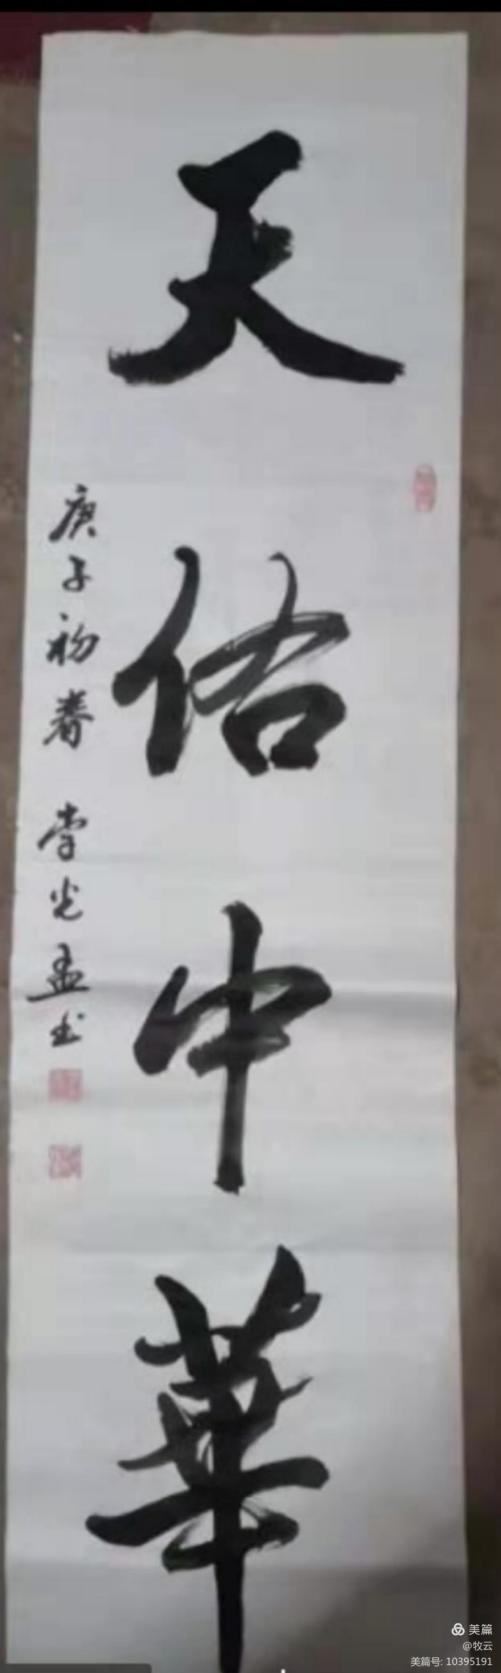 天佑中華
庚子初春 李光孟书
美篇
@牧云
美篇号: 10395191